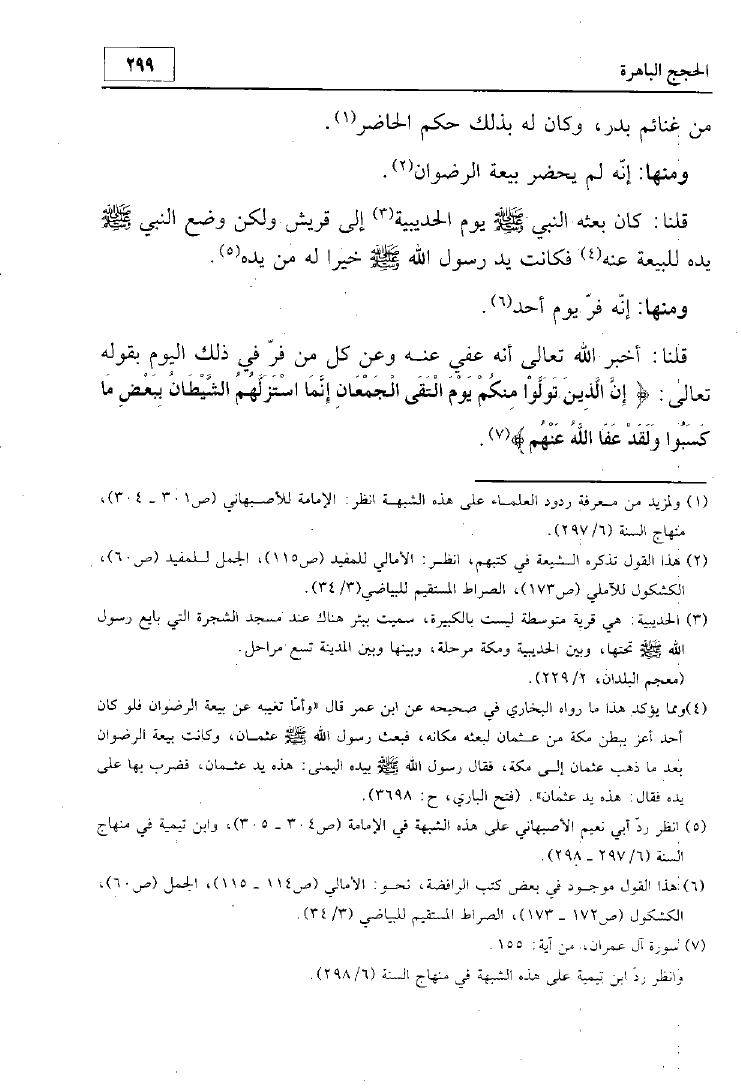 الحجج الباهرة
٢٩٩
من غنائم بدر، وكان له بذلك حكم الحاضر(١).
ومنها: إنّه لم يحضر بيعة الرضوان(٢).
قلنا: كان بعثه النبي ﷺ يوم الحديبية(٣) إلى قريش ولكن وضع النبي ﷺ
يده للبيعة عنه(٤) فكانت يد رسول الله ﷺ خيرا له من يده(٥).
ومنها: إنّه فرّ يوم أحد(٦).
قلنا: أخبر الله تعالى أنه عفي عنه وعن كل من فرّ في ذلك اليوم بقوله
تعالى: ﴿ إِنَّ الَّذِينَ تَوَلَّوْا مِنكُمْ يَوْمَ الْتَقَى الْجَمْعَانِ إِنَّمَا اسْتَزَلَّهُمُ الشَّيْطَانُ بِبَعْضِ مَا
كَسَبُوا وَلَقَدْ عَفَا اللهُ عَنْهُم ﴾(٧).
(١) ولمزيد من معرفة ردود العلماء على هذه الشبهة انظر: الإمامة للأصبهاني (ص٣٠١ ـ ٣٠٤)،
منهاج السنة (٦/ ٢٩٧).
(٢) هذا القول تذكره الشيعة في كتبهم، انظر: الأمالي للمفيد (ص١١٥)، الجمل للمفيد (ص٦٠)،
الكشكول للآملي (ص١٧٣)، الصراط المستقيم للبياضي(٣/ ٣٤).
(٣) الحديبية: هي قرية متوسطة ليست بالكبيرة، سميت ببئر هناك عند مسجد الشجرة التي بايع رسول
الله ﷺ تحتها، وبين الحديبية ومكة مرحلة، وبينها وبين المدينة تسع مراحل.
(معجم البلدان، ٢/ ٢٢٩).
(٤)ومما يؤكد هذا ما رواه البخاري في صحيحه عن ابن عمر قال «وأمّا تغيبه عن بيعة الرضوان فلو كان
أحد أعز ببطن مكة من عثمان لبعثه مكانه، فبعث رسول الله ﷺ عثمان، وكانت بيعة الرضوان
بعد ما ذهب عثمان إلى مكة، فقال رسول الله ﷺ بيده اليمنى: هذه يد عثمان، فضرب بها على
يده فقال: هذه يد عثمان». (فتح الباري، ح: ٣٦٩٨).
(٥) انظر ردّ أبي نعيم الأصبهاني على هذه الشبهة في الإمامة (ص٣٠٤ ـ ٣٠٥)، وابن تيمية في منهاج
السنة (٦/ ٢٩٧ ـ ٢٩٨).
(٦)هذا القول موجود في بعض كتب الرافضة، نحو: الأمالي (ص١١٤ ـ ١١٥)، الجمل (ص٦٠)،
الكشكول (ص١٧٢ ـ ١٧٣)، الصراط المستقيم للبياضي (٣/ ٣٤).
(٧) سورة آل عمران، من آية: ١٥٥.
وانظر ردّ ابن تيمية على هذه الشبهة في منهاج السنة (٦/ ٢٩٨).